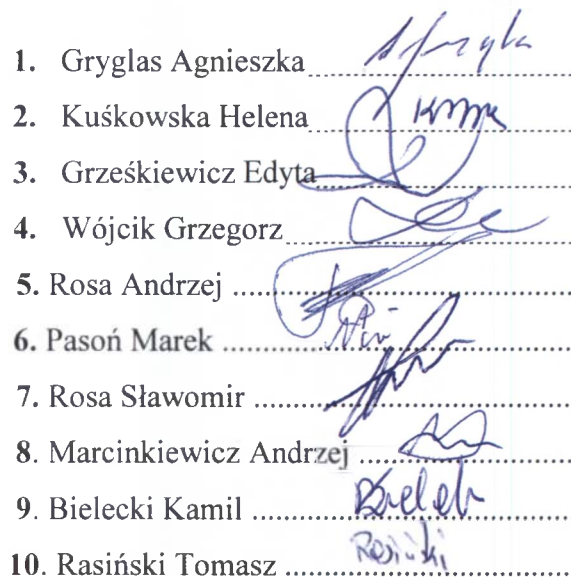 1. Gryglas Agnieszka
2. Kuśkowska Helena
3. Grześkiewicz Edyta
4. Wójcik Grzegorz
5. Rosa Andrzej ..........
6. Pasoń Marek ..........
7. Rosa Sławomir ..........
8. Marcinkiewicz Andrzej ..........
9. Bielecki Kamil ..........
10. Rasiński Tomasz .......... Rasiński